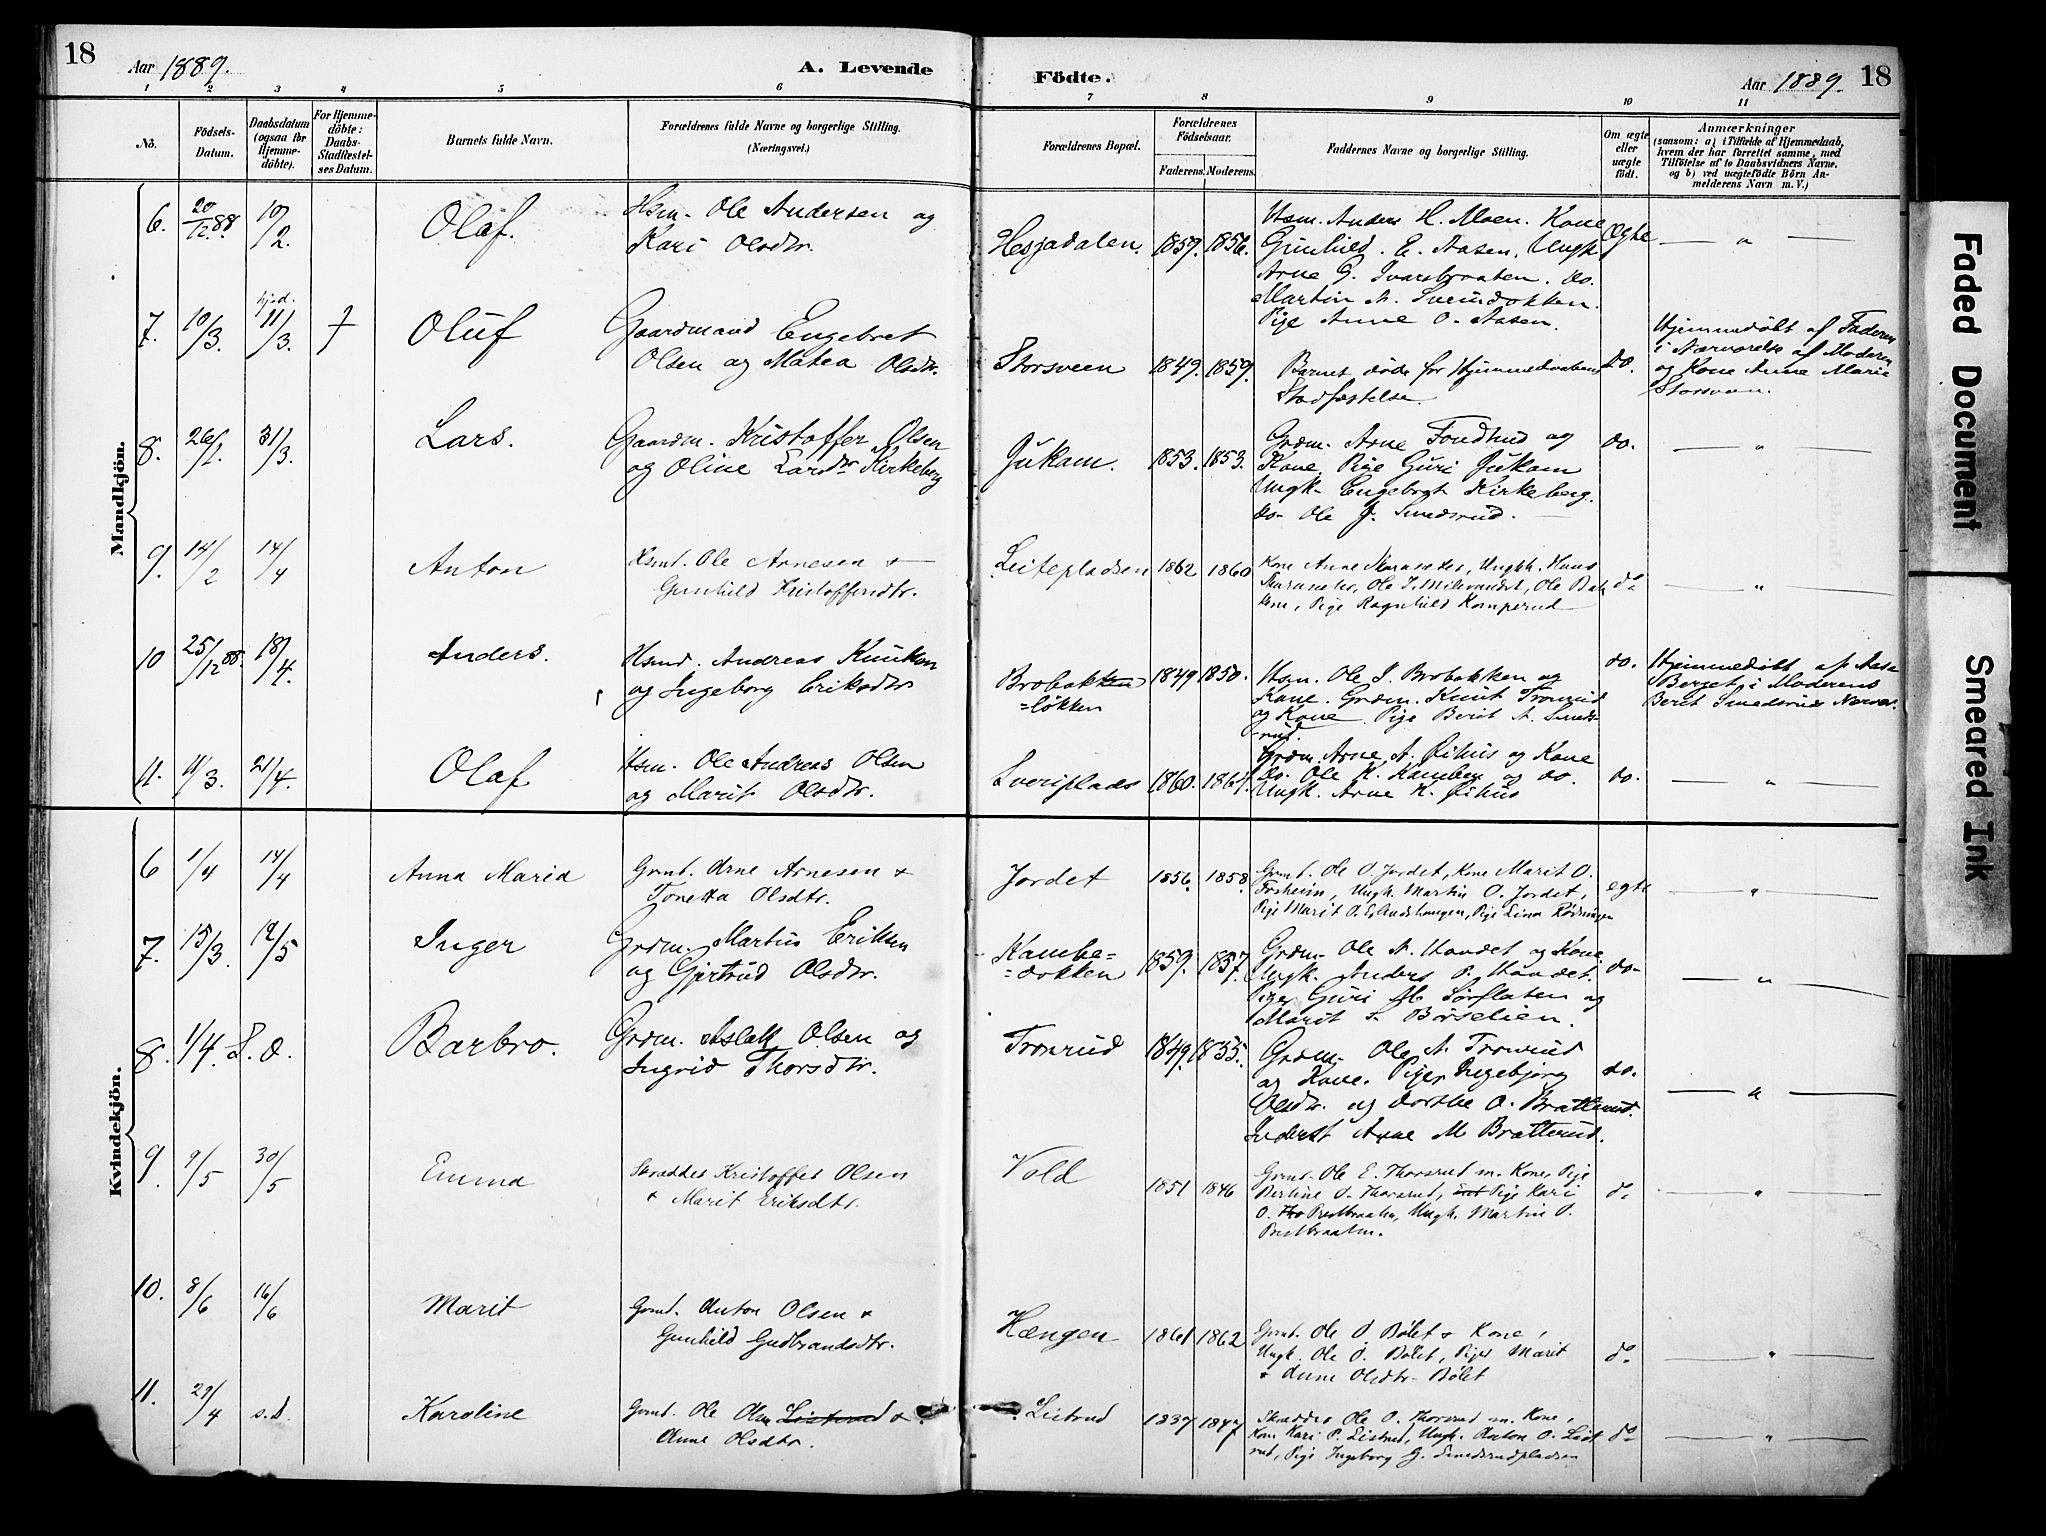 18
Aar 1889.
A. Levende
Födte.
Aar 1889.
18
1 2 3 4 5 6 7 8 9 10 11
No.
Födsels-Datum.
Daabsdatum (ogsaa for Hjemmedöbte).
For Hjemmedöbte: Daabs-Stadfæstelses Datum.
Barnets fulde Navn.
Forældrenes fulde Navne og borgerlige Stilling.
(Næringsvei.)
Forældrenes Bopæl.
Forældrenes Födselsaar.
Faderens. Moderens.
Faddernes Navne og borgerlige Stilling.
Om ægte eller uægte födt.
Anmærkninger
(saasom: a) i Tilfælde af Hjemmedaab, hvem der har forrettet samme, med Tilföielse af to Daabsvidners Navne, og b) ved uægtefödte Börn Anmelderens Navn m. V.)
Mandkjön.
6. 20/12.88 10/2. Olaf. Hsm. Ole Andersen og
Kari Olsdtr.
Hesjadalen. 1857. 1856.
Husm. Anders H. Moen. Kone
Gunhild. E. Aasen. Ungk
Arne G. Ivarsbraaten. do.
Martin A. Sveindokken.
Pige Anne O. Aasen.
ægte — " —
7. 10/3. hjd. 11/3. † Oluf Gaardmand Engebret
Olsen og Matea Olsdtr.
Storsveen 1849. 1859.
Barnet døde før Hjemmedaabens
Stadfæstelse.
do.
Hjemmedøbt af Faderen
i Nærværelse af Moderen
og Kone Anne Marie
Storsveen.
8. 26/1. 31/3. Lars. Gaardm. Kristoffer Olsen
og Oline Larsdtr Kirkeberg
Jukam. 1853. 1853.
Grdm. Arne Fondrud og
Kone. Pige Guri Jukam
Ungk. Engebret Kirkeberg.
do. Ole J. Smedsrud.
do. — " —
9. 14/2 14/4 Anton Hsmd. Ole Arnesen &
Gunhild Kristoffersdtr.
Leitepladsen 1862 1860
Kone Anne Skaraseter, Ungk. Hans
Skaraseter, Ole I. Milevandet, Ole Bak
kene, Pige Ragnhild Komperud
do. "
10 25/12 88. 18/4. Anders. Hsmd. Andreas Knutsen
og Ingeborg Eriksdtr
Brobakken
=løkken
1849 1850.
Husm. Ole I. Brobakken og
Kone. Grdm. Knut Tronrud
og Kone. Pige Berit A. Smeds-
rud.
do.
Hjemmedøbt af Aase
Berget i Moderens
Berit Smedsruds Nærvær.
11. 11/3. 21/4. Olaf Hsm. Ole Andreas Olsen
og Marit Olsdtr.
Sveriplads 1860. 1864.
Grdm. Arne A. Øihus og Kone
do. Ole K. Kamben og do.
Ungk. Arne K. Øihus
do. — " —
Kvindekjön.
6 1/4 14/4 Anna Maria Grmd. Arne Arnesen &
Tonetta Olsdtr.
Jordet 1856. 1858.
Grmd. Ole O. Jordet, Kone Marit O.
Forsheim, Ungk. Martin O. Jordet,
Pige Marit O. Islandshaugen, Pige Lina Rødningen
egte "
7. 15/3. 12/5 Inger Grdm. Martius Eriksen
og Gjertrud Olsdtr.
Kambe=
=dokken
1859. 1857.
Grdm. Ole A. Haudet og Kone.
Ungk. Anders P. Haudet.
Piger Guri M. Sørflaten og
Marit S. Børselien.
do- "
8. 1/4. S. D. Barbro. Grdm. Aslak Olsen og
Ingrid Thorsdtr.
Tronrud 1849. 1855.
Grdm. Ole A. Tronrud
og Kone. Piger Ingebjørg
Olsdtr. og Dorthe O. Bratterud.
Inderst Arne M Bratterud.
do. — " —
9. 9/5 30/5 Emma Skrædder Kristoffer Olsen
& Marit Eriksdtr.
Vold 1851 1846
Grmd. Ole E. Thorsrud m. Kone, Pige
Bertine O. Thorsrud, Pige Kari
O. Prestbraaten, Ungk. Martin O.
Prestbraaten.
do "
10. 8/6 16/6 Marit Grmd. Anton Olsen &
Gunhild Gudbrandsdtr.
Hængen 1861 1862
Grmd. Ole O. Bølet & Kone,
Ungk. Ole O. Bølet, Piger Marit
& Anne Olsdtr Bølet
do "
11. 29/4 s.d. Karoline Grmd. Ole Olsen Listerud &
Anne Olsdtr.
Listrud 1837 1847
Skrædder Ole O. Thorsrud m. Kone,
Kone Kari P. Listrud, Ungk. Anton O. List
rud, Pige Ingeborg G. Smedsrudpladsen
do "
Faded Document
Smeared Ink